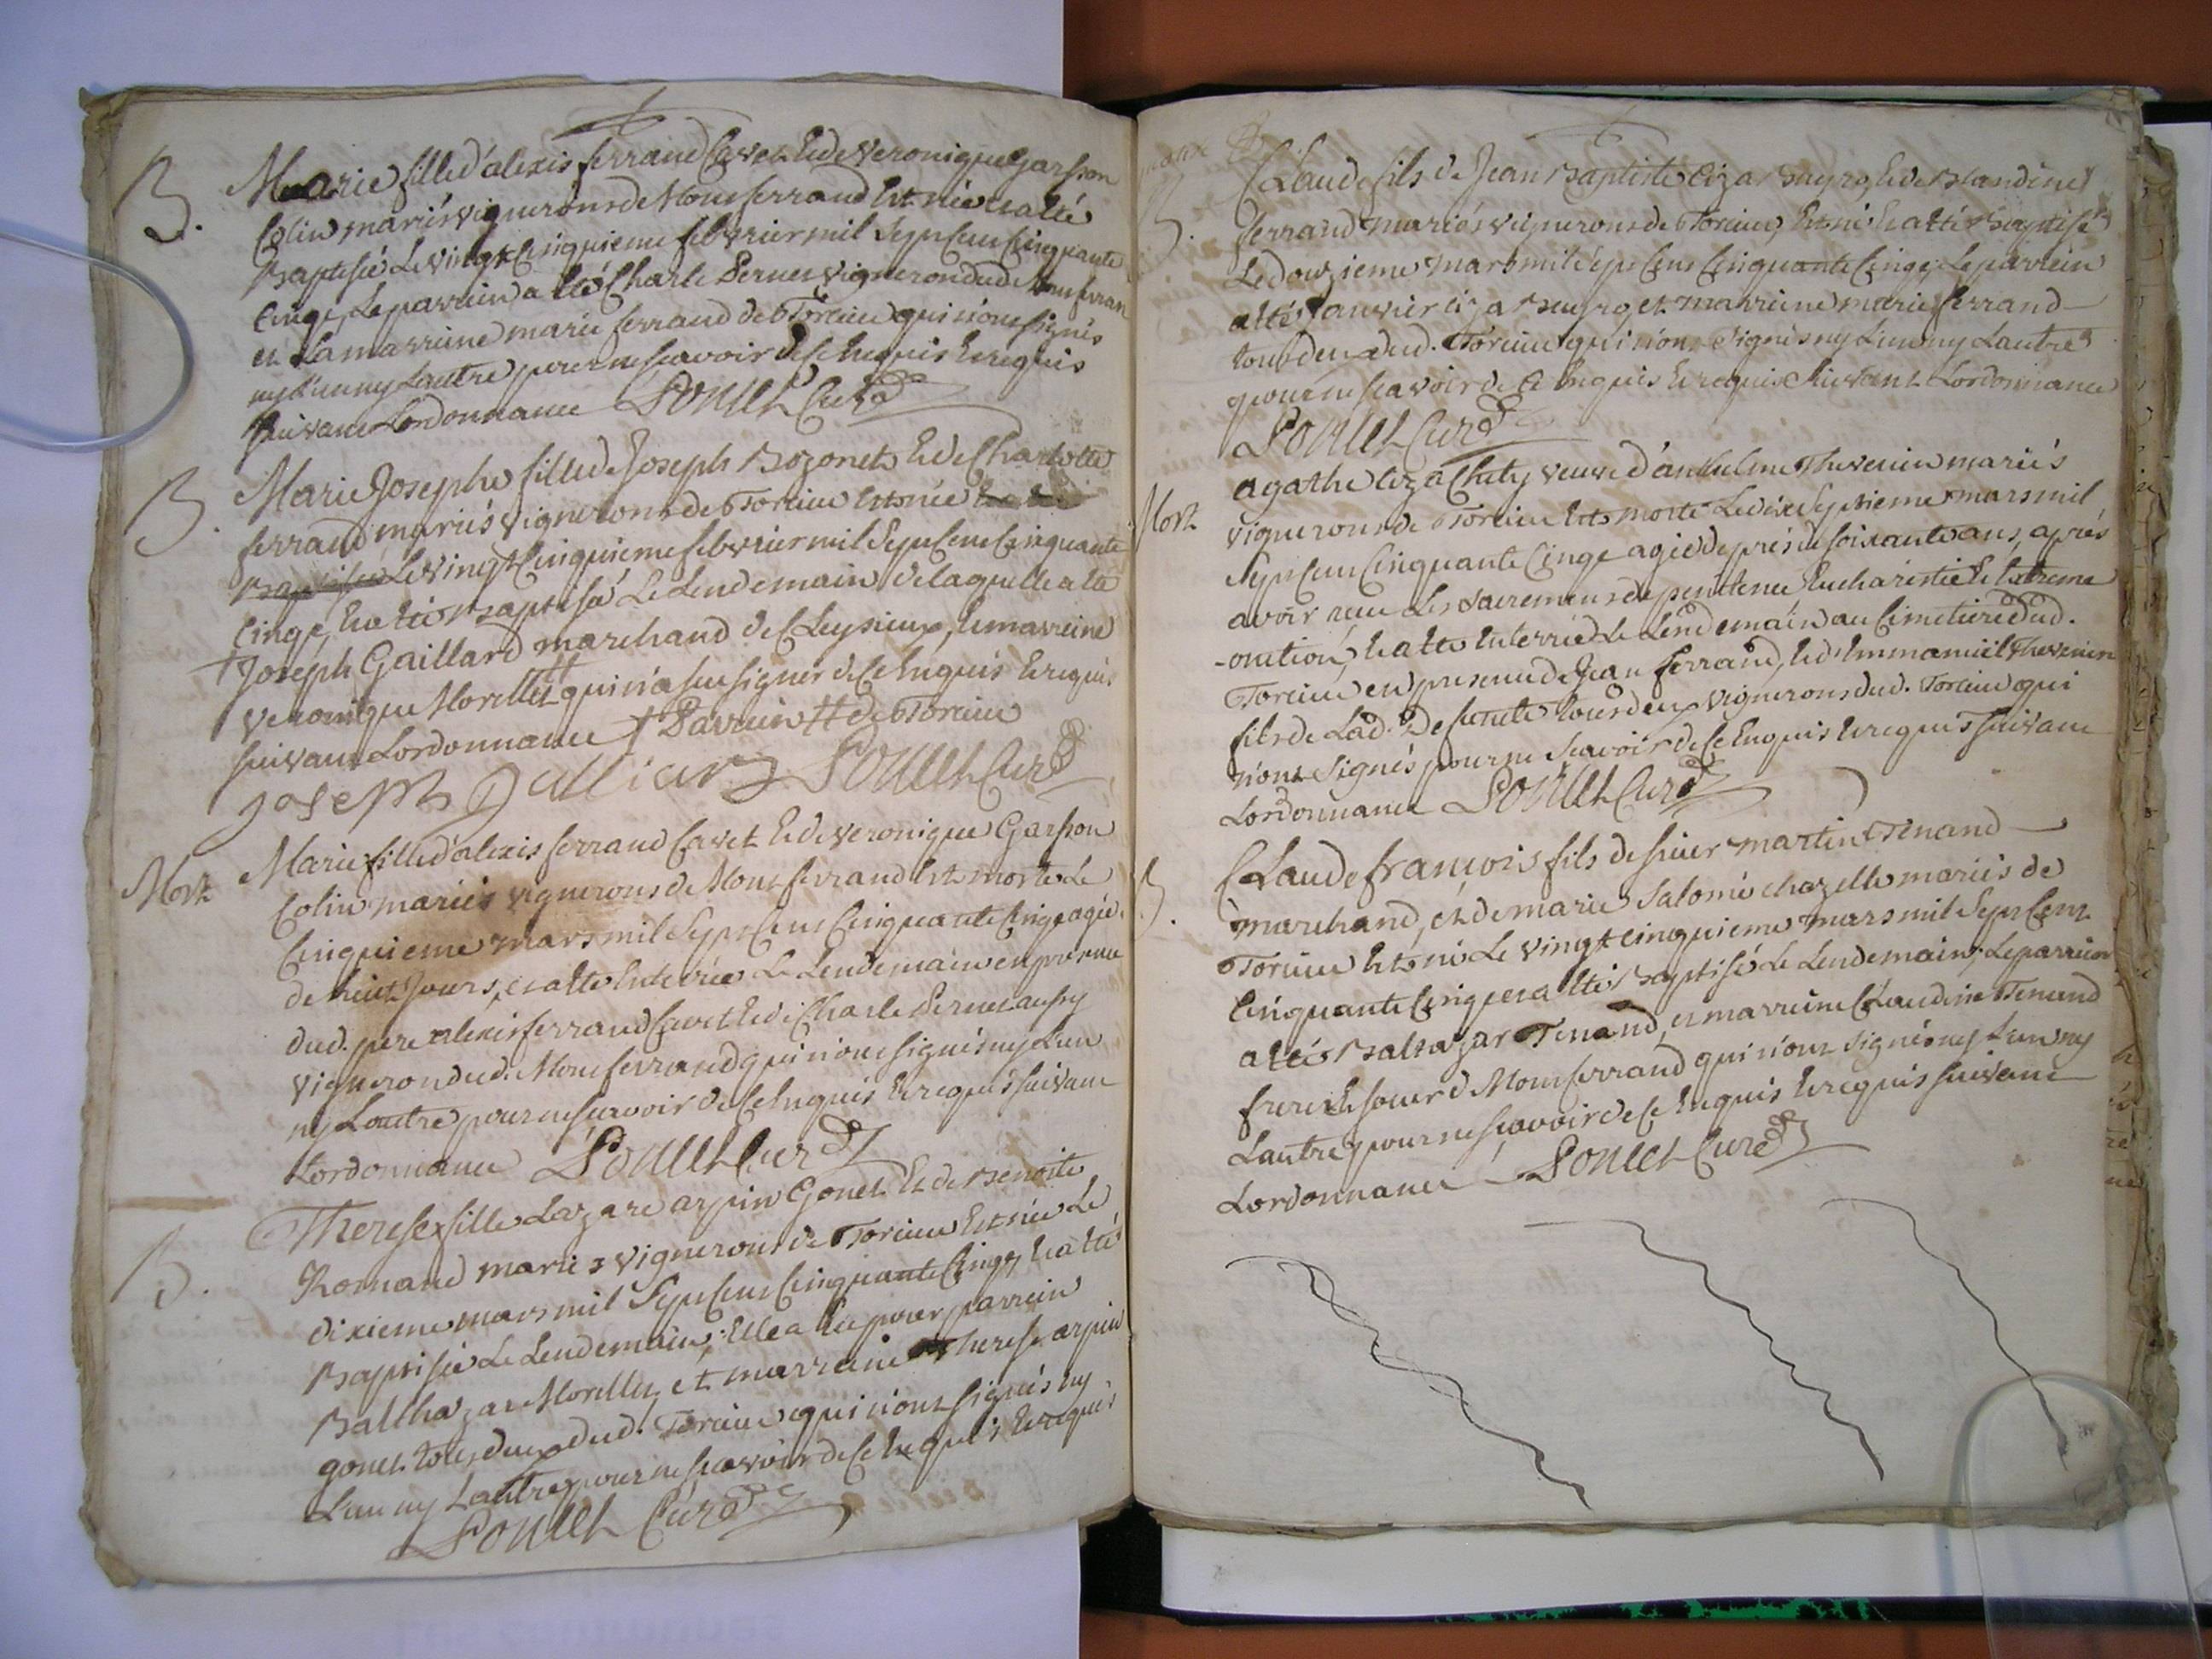 B.
Marie fille d'alexis ferrand Cavet Et de Veronique Garsson
Colin mariés vignerons de Montferrand Est née et a été
Baptisée Le vingt Cinquieme febvrier mil Sept Cent Cinquante
Cinq, Le parrein a été Charle Pernet vigneron dud. Montferran
et La marreine marie ferrand de Torcieu qui n'ont signés
ny L'un ny L'autre pour ne scavoir de ce Enquis Et requis
suivant Lordonnance Curé
B.
Marie Josephe fille de Joseph Bozonet Et de Charlotte
ferrand mariés vignerons de Torcieu Est née
Baptisée Le vingt Cinquieme febvrier mil Sept Cent Cinquante
Cinq, Et a été Baptisé Le Lendemain de laquelle a été
† Joseph Gaillard marchand de Cleyzieux, Et marreine
Veronique Morellet # qui n'a sceu signer de ce Enquis Et requis
suivant Lordonnance † Parrein # de Torcieu
Joseph galliard Curé
Mort
Marie fille d'alexis ferrand Cavet Et de Veronique Garsson
Colin mariés vignerons de Montferrand Est morte Le
Cinquieme mars mil Sept Cent Cinquante Cinq agée
de huit Jours, et a été Enterrée Le Lendemain en presence
dud. pere alexis ferrand Cavet Et de Charle Pernet aussy
vigneron dud. Montferrand qui n'ont signés ny L'un
ny Lautre pour ne scavoir de ce Enquis Et requis suivant
Lordonnance Curé
B.
Therese fille Lazare arpin Gonet Et de Benoite
Romand mariés vignerons de Torcieu Est née Le
dixieme mars mil Sept Cent Cinquante Cinq, Et a été
Baptisée Le Lendemain; Elle a Eu pour parrein
Balthazar Morellet, et marreine Therese arpin
gonet tous deux dud. Torcieu qui n'ont signés ny
L'un ny L'autre pour ne scavoir de ce Enquis Et requis
Curé
B.
Claude fils de Jean Baptiste Liza Et de Blandine
ferrand mariés vignerons de Torcieu, Est né Et a été Baptisé
Le douzieme mars mil sept Cent Cinquante Cinq; Le parrein
a été Janvier Liza et marreine marie ferrand
tous deux dud. Torcieu qui n'ont signés ny L'un ny Lautre
pour ne scavoir de ce Enquis Et requis suivant Lordonnance
Curé
Mort
agathe Liza Chety veuve d'anthelme Thevenin mariés
vignerons de Torcieu Est morte Le dix Septieme mars mil
Sept Cent Cinquante Cinq agée de prés de soixante ans, aprés
avoir receu Les sacremens de penitence Eucharistie Et Extreme
-onction, Et a été Enterrée Le Lendemain au Cimetiere dud.
Torcieu en presence de Jean ferrand, Et d'Emmanuel Thevenin
fils de Lad. Defunte tous deux vignerons dud. Torcieu qui
n'ont signés pour ne scavoir de ce Enquis Et requis suivant
Lordonnance Curé
B.
Claude françois fils de sieur martin Tenand
marchand, et de marie Salomé chazelle mariés de
Torcieu Est né Le vingt cinquieme mars mil Sept Cent
Cinquante Cinq et a été Baptisé Le Lendemain; Le parrein
a été Baltazar Tenand, et marreine Claudine Tenand
frere Et soeur de Montferrand qui n'ont signés ny L'un ny
Lautre pour ne scavoir de ce Enquis Et requis suivant
Lordonnance Curé